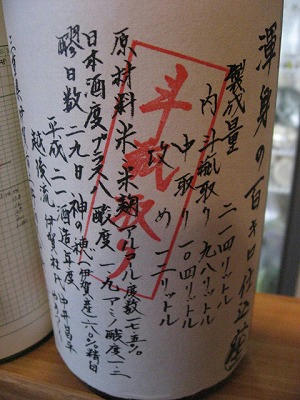 渾身の百キロ仕込
製成量 二一四リットル
内 斗瓶取り 九八リットル
中取り 一〇四リットル
攻め 一二リットル
斗瓶取り
原材料 米 米麹 アルコール度数 一七・五%
日本酒度 プラス八 酸度 一・九 アミノ酸度 一・二
醪日数 二九日 神の穂(伊賀産)六〇%精白
平成二一酒造年度
越後流 伊賀杜氏 中井昌平